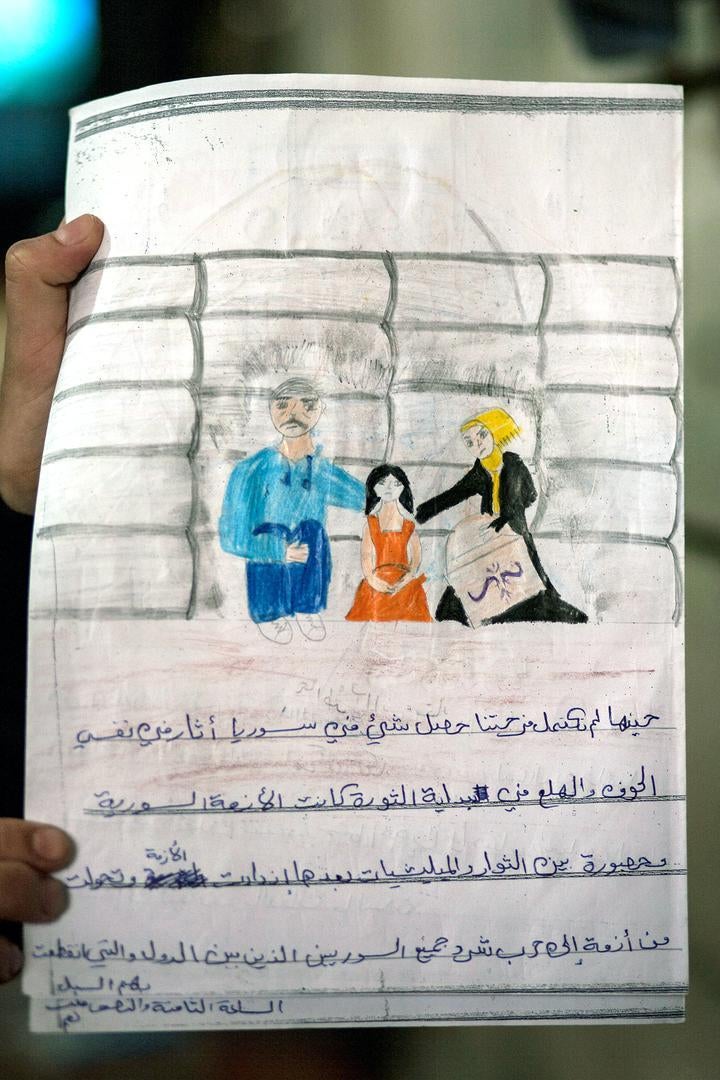 حينها لم تكتمل فرحتنا حصل شيئ في سوريا أثار في نفسي
الخوف والهلع في بداية الثورة كانت الأزمة السورية
محصورة بين الثوار والميليشيات بعدها إزدادت الأزمة وتحولت
من أزمة إلى حرب شرد جميع السوريين الذين بين الدول والتي انقطعت
بهم السبل
الساعة الثامنة والنصف